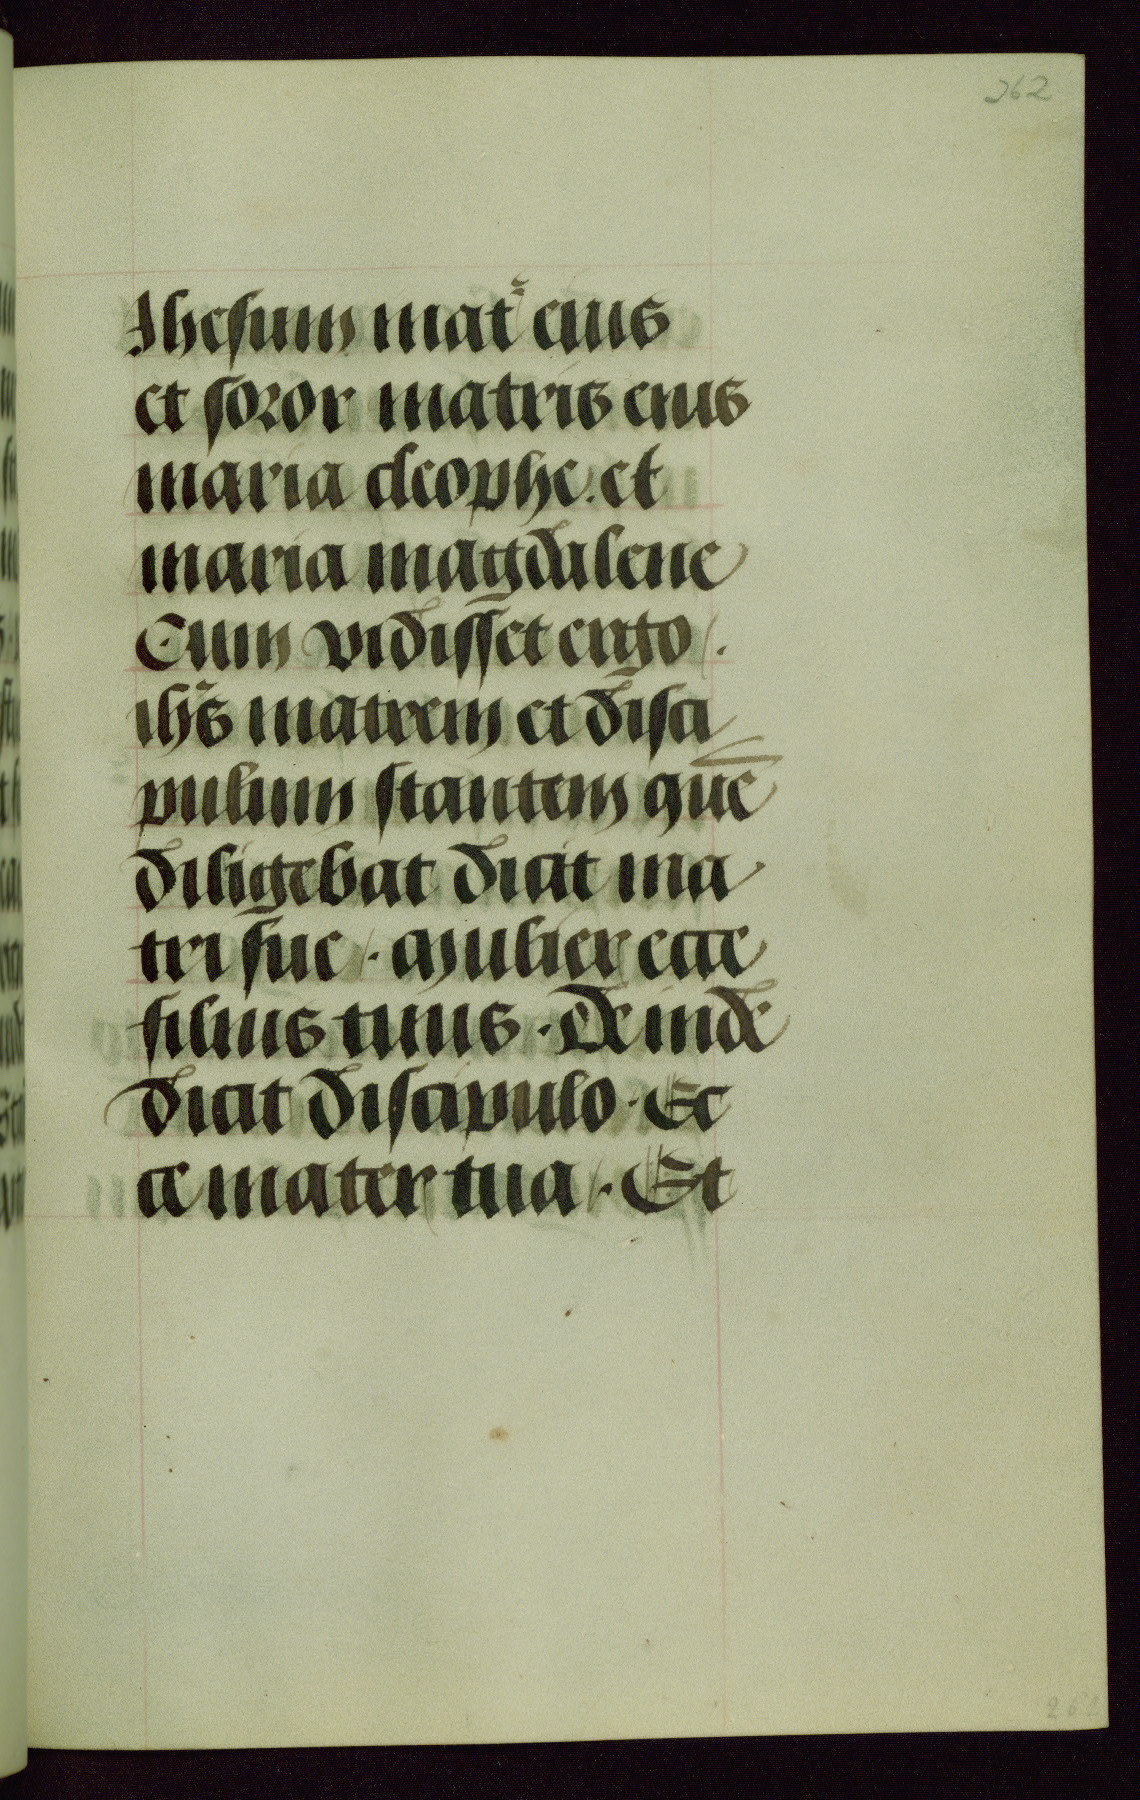 262
Ihesum mat̄ eius
et soror matris eius
maria cleophe. et
maria magdalene
Cum vidisset ergo /.
ihs̄ matrem et disci
pulum stantem quē
diligebat dicit ma
tri sue /. Mulier ecce
filius tuus. Deinde
dicit discipulo. Ec
ce mater tua /. Et